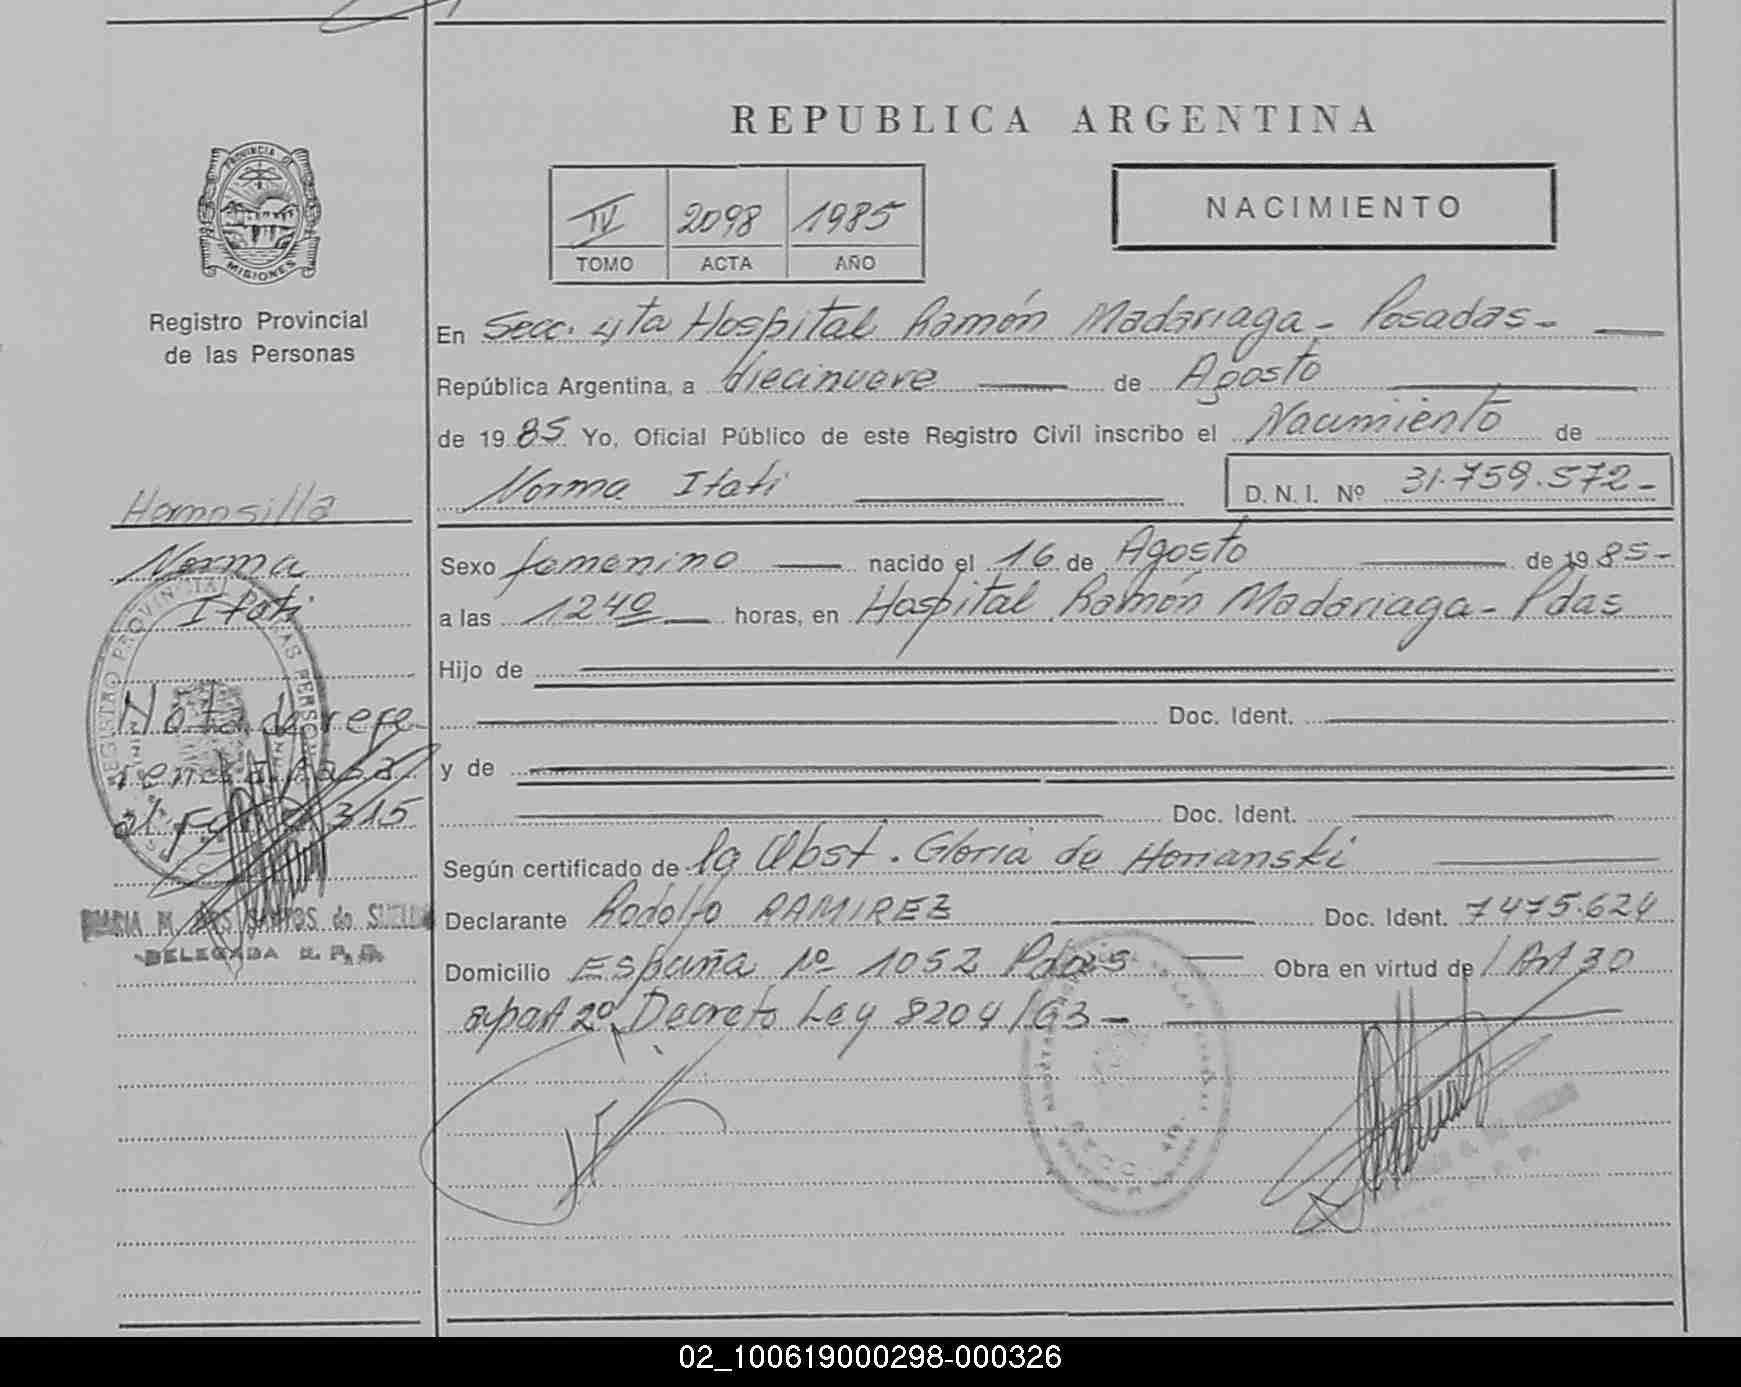 REPUBLICA ARGENTINA
PROVINCIA DE
MISIONES
Registro Provincial
de las Personas
IV 2098 1985
TOMO ACTA AÑO
NACIMIENTO
En Secc. 4ta Hospital Ramón Madariaga - Posadas -
República Argentina, a diecinueve de Agosto
de 19 85 Yo, Oficial Público de este Registro Civil inscribo el Nacimiento de
Norma Itati D. N. I. Nº 31.759.572 -
Norma
Itati
Nota de refe
rencia pasa
al folio 315
DELEGADA R. P. P.
Sexo femenino nacido el 16 de Agosto de 19 85 -
a las 1240 horas, en Hospital Ramón Madariaga - Pdas
Hijo de
Doc. Ident.
y de
Doc. Ident.
Según certificado de la Obst. Gloria de
Declarante Rodolfo RAMIREZ Doc. Ident. 7475.624
Domicilio España Nº 1052 Pdas Obra en virtud de Art 30
apart 2º Decreto Ley 8204/63 -
02_100619000298-000326